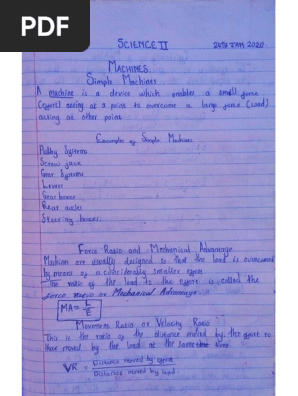 PDF
SCIENCE II 24TH JAN 2020
MACHINES.
Simple Machines
A machine is a device which enables a small force
(effort) acting at a point to overcome a large force (load)
acting at other point
Examples of Simple Machines
Pulley Systems
Screw jack
Gear Systems
Levers
Gear boxes
Rear axles
Steering boxes.
Force Ratio and Mechanical Advantage
Machine are usually designed so that the load is overcomed
by means of a considerably smaller effort
The ratio of the load to the effort is called the
force ratio or Mechanical Advantage
MA = L/E
Movement Ratio or Velocity Ratio
This is the ratio of the distance moved by the effort to
that moved by the load at the same time
VR = Distance moved by effort
Distance moved by load